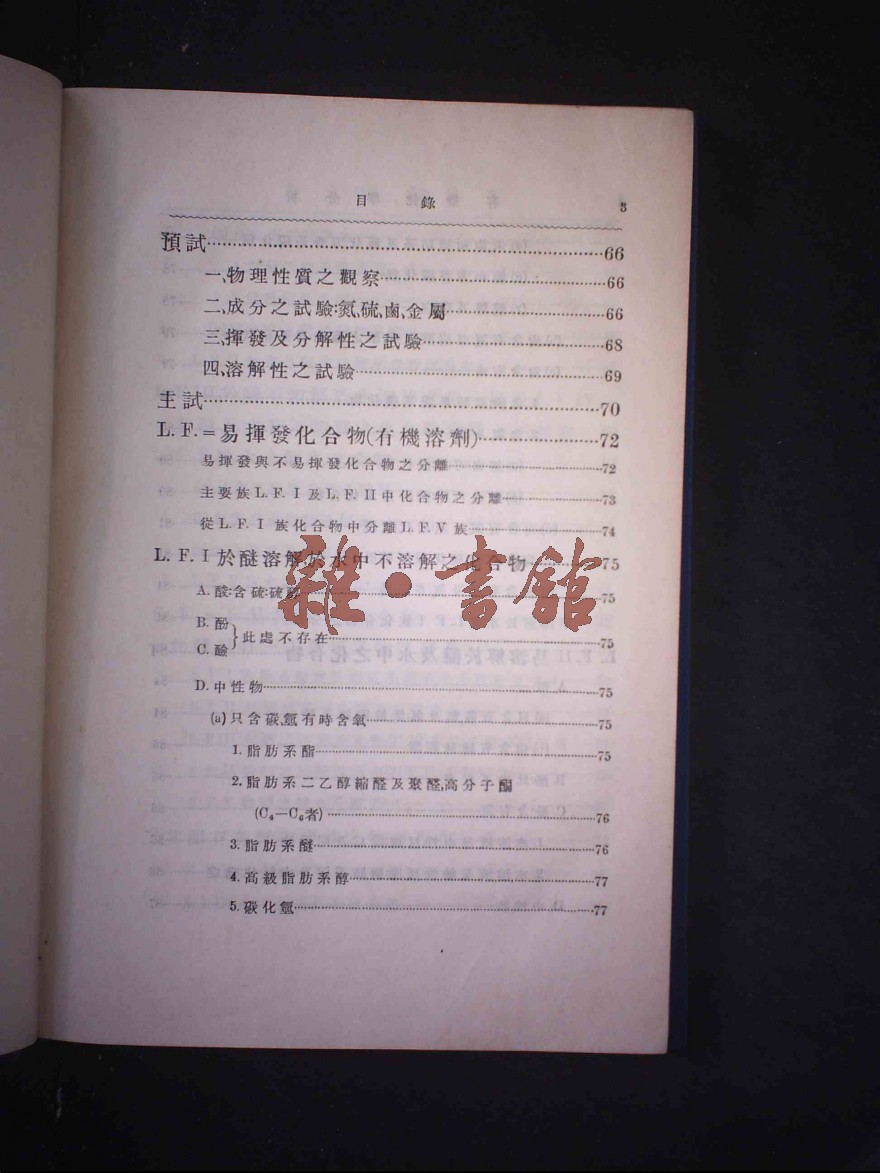 目錄 3
預試……66
一、物理性質之觀察……66
二、成分之試驗:氮、硫、鹵、金屬……66
三、揮發及分解性之試驗……68
四、溶解性之試驗……69
主試……70
L. F. = 易揮發化合物(有機溶劑)……72
易揮發與不易揮發化合物之分離……72
主要族 L. F. I 及 L. F. II 中化合物之分離……73
從 L. F. I 族化合物中分離 L. F. V 族……74
L. F. I 於醚溶解於水中不溶解之化合物……75
A. 酸:含硫:硫……75
B. 酚
C. 鹼 } 此處不存在……75
D. 中性物……75
(a) 只含碳、氫有時含氧……75
1. 脂肪系酯……75
2. 脂肪系二乙醇縮醛及聚醛,高分子酮
(C₄—C₆者)……76
3. 脂肪系醚……76
4. 高級脂肪系醇……77
5. 碳化氫……77
雜·書館